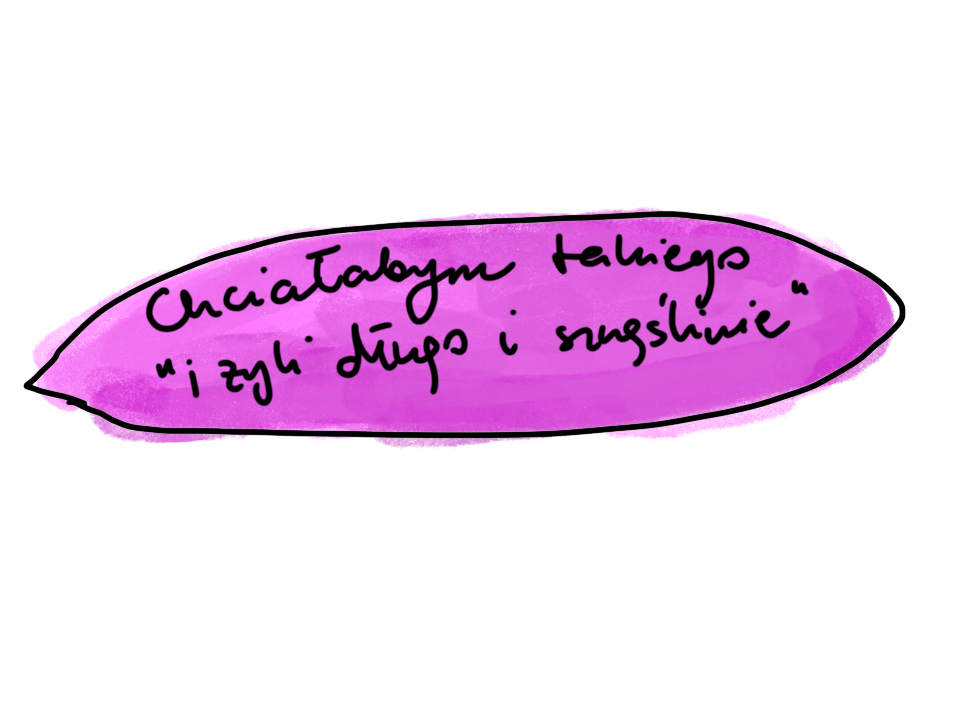 Chciałabym takiego
"i żyli długo i szczęśliwie"